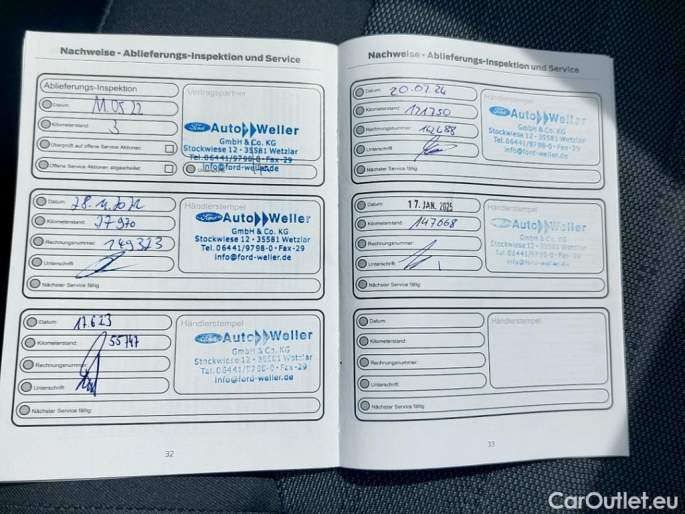 Nachweise - Ablieferungs-Inspektion und Service
Ablieferungs-Inspektion
Datum: 11.05.22
Kilometerstand: 3
Überprüft auf offene Service Aktionen
Offene Service Aktionen abgearbeitet
Vertragspartner
Ford Auto Weller
GmbH & Co. KG
Stockwiese 12 - 35581 Wetzlar
Tel. 06441/9798-0 • Fax -29
info@ford-weller.de
Datum:
Kilometerstand: 27970
Rechnungsnummer: 149323
Unterschrift:
Nächster Service fällig:
Händlerstempel
Ford Auto Weller
GmbH & Co. KG
Stockwiese 12 - 35581 Wetzlar
Tel. 06441/9798-0 • Fax -29
info@ford-weller.de
Datum: 17.6.23
Kilometerstand: 55747
Rechnungsnummer:
Unterschrift:
Nächster Service fällig:
Händlerstempel
Ford Auto Weller
GmbH & Co. KG
Stockwiese 12 - 35581 Wetzlar
Tel. 06441/9798-0 • Fax -29
info@ford-weller.de
32
Nachweise - Ablieferungs-Inspektion und Service
Datum: 20.02.24
Kilometerstand: 121750
Rechnungsnummer:
Unterschrift:
Nächster Service fällig:
Händlerstempel
Ford Auto Weller
GmbH & Co. KG
Stockwiese 12 - 35581 Wetzlar
Tel. 06441/9798-0 • Fax -29
info@ford-weller.de
Datum: 17. JAN. 2025
Kilometerstand: 147068
Rechnungsnummer:
Unterschrift:
Nächster Service fällig:
Händlerstempel
Ford Auto Weller
GmbH & Co. KG
Stockwiese 12 - 35581 Wetzlar
Tel. 06441/9798-0 • Fax -29
info@ford-weller.de
Datum:
Kilometerstand:
Rechnungsnummer:
Unterschrift:
Nächster Service fällig:
Händlerstempel
33
CarOutlet.eu